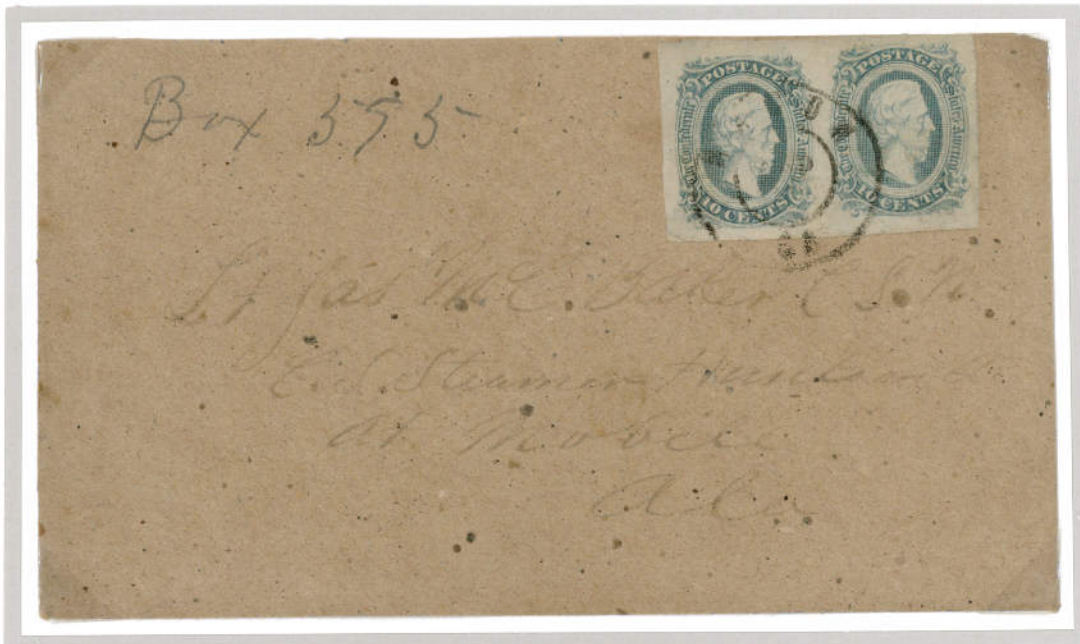 Box 595
POSTAGE The Confederate States America 10 CENTS
POSTAGE The Confederate States America 10 CENTS
Lt Jas McC. Baker C.S.N.
C.S. Steamer Huntsville
at Mobile
Ala